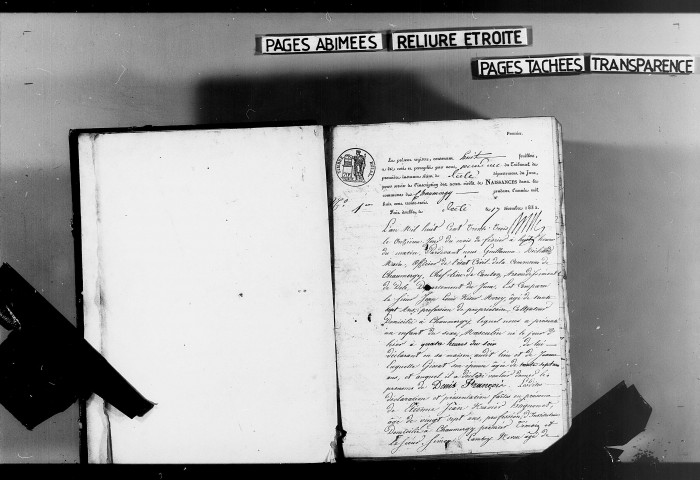 PAGES ABIMEES RELIURE ETROITE
PAGES TACHEES TRANSPARENCE
Premier.
Le présent registre, contenant huit feuillets,
a été coté et paraphé par nous, président du Tribunal de
première instance séant à Dole département du Jura,
pour servir à l'inscription des actes civils de NAISSANCES dans la
commune de Chaumergy pendant l'année mil
huit cent trente-trois.
Fait double, à Dole le 17 décembre 1832.
L'an Mil huit Cent Trente Trois
le onzième Jour du mois de février à sept heures
du matin, Pardevant nous Guillaume
Marie, Officier de l'état Civil de la Commune de
Chaumergy, Chef lieu de Canton, arrondissement
de Dole, Département du Jura, Est Comparu
le sieur Jean Louis Morey âgé de trente
sept Ans, profession de propriétaire, Cultivateur
Domicilié à Chaumergy, lequel nous a présenté
un enfant du sexe Masculin né le jour d'
hier à quatre heures du soir de lui
déclarant en sa maison, audit lieu et de Jeanne
Huguette Girard son épouse âgée de trente sept
ans, et auquel il a déclaré vouloir donner les
prénoms de Denis François. Lesdites
déclaration et présentation faites en présence
de Etienne Jean Xavier
âgé de vingt sept ans, profession d'Instituteur
Domicilié à Chaumergy premier Témoin et
le sieur âgé de